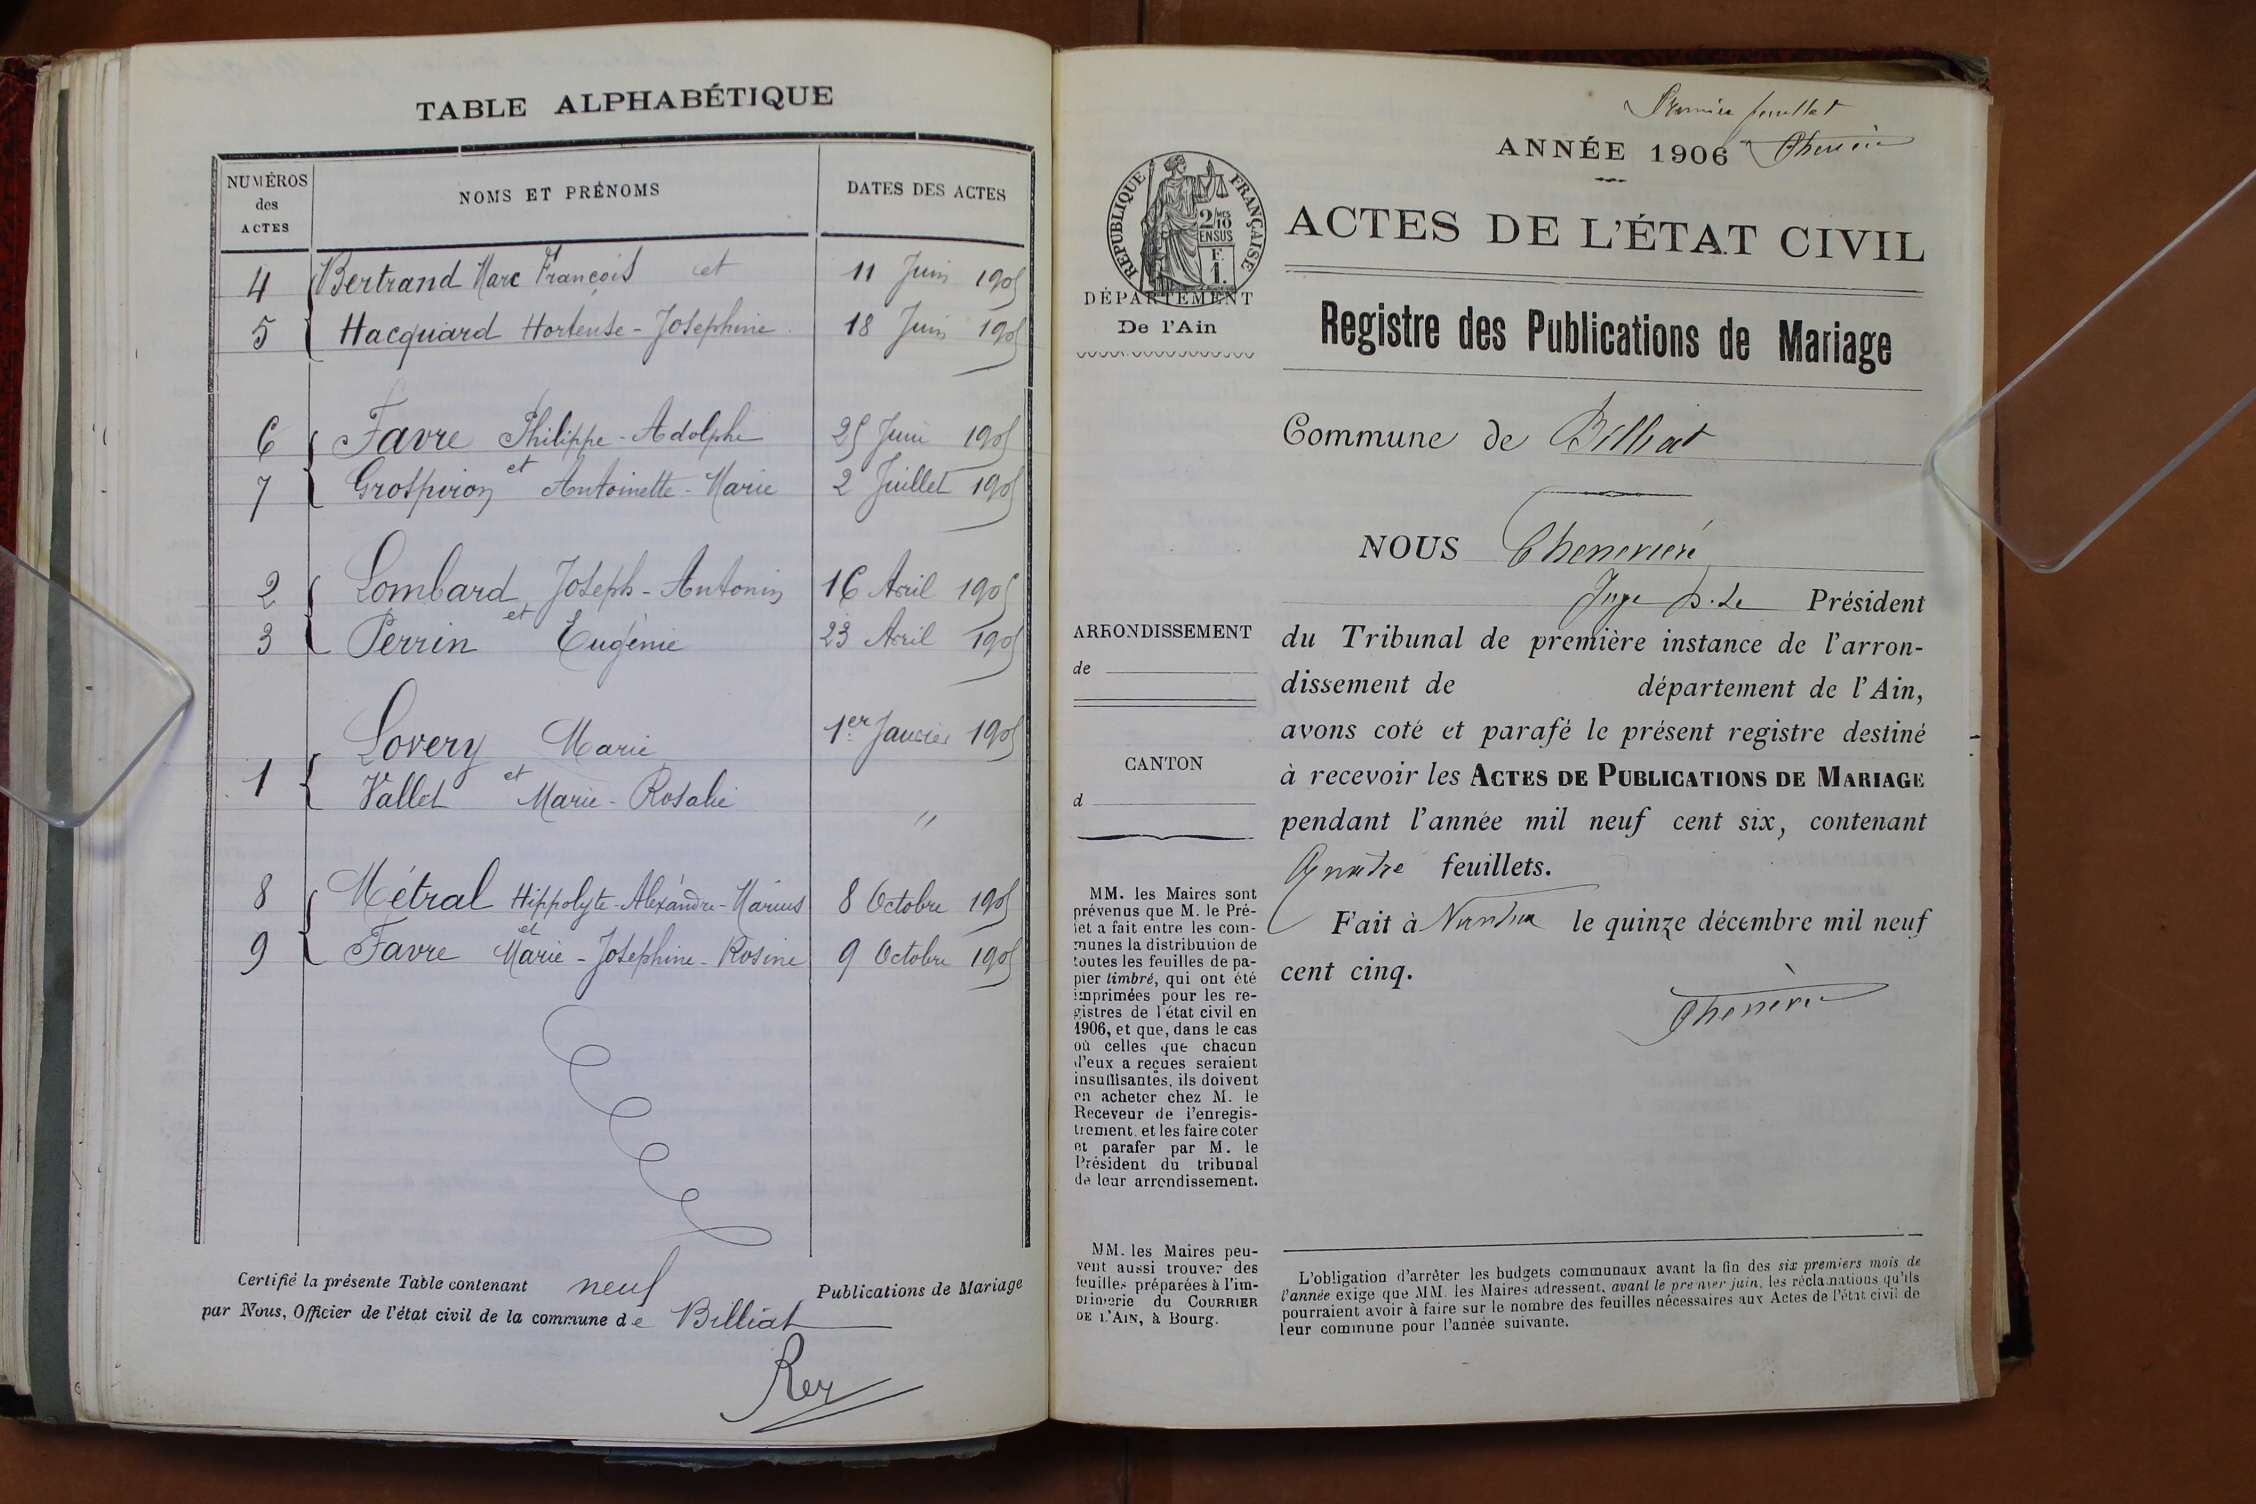 TABLE ALPHABÉTIQUE
NUMÉROS
des
ACTES
NOMS ET PRÉNOMS
DATES DES ACTES
4 Bertrand Marc François et 11 Juin 1905
5 Hacquard Hortense-Josephine 18 Juin 1905
6 Favre Philippe-Adolphe 25 Juin 1905
et
7 Grospiron Antoinette-Marie 2 Juillet 1905
2 Lombard Joseph-Antonin 16 Avril 1905
et
3 Perrin Eugénie 23 Avril 1905
Lovery Marie 1er Janvier 1905
1
et
Vallet Marie-Rosalie "
8 Métral Hippolyte-Alexandre-Marius 8 Octobre 1905
et
9 Favre Marie-Josephine-Rosine 9 Octobre 1905
Certifié la présente Table contenant neuf Publications de Mariage
par Nous, Officier de l'état civil de la commune de Billiat
Rey
Premier feuillet
ANNÉE 1906
RÉPUBLIQUE FRANÇAISE
2/10
MES
EN SUS
F.
1.
ACTES DE L'ÉTAT CIVIL
DÉPARTEMENT
De l'Ain
Registre des Publications de Mariage
Commune de Billiat
NOUS
Juge Président
ARRONDISSEMENT
de
du Tribunal de première instance de l'arron-
dissement de département de l'Ain,
avons coté et parafé le présent registre destiné
CANTON
d
à recevoir les ACTES DE PUBLICATIONS DE MARIAGE
pendant l'année mil neuf cent six, contenant
Quatre feuillets.
Fait à Nantua le quinze décembre mil neuf
cent cinq.
MM. les Maires sont
prévenus que M. le Pré-
fet a fait entre les com-
munes la distribution de
toutes les feuilles de pa-
pier timbré, qui ont été
imprimées pour les re-
gistres de l'état civil en
1906, et que, dans le cas
où celles que chacun
d'eux a reçues seraient
insuffisantes, ils doivent
en acheter chez M. le
Receveur de l'enregis-
trement, et les faire coter
et parafer par M. le
Président du tribunal
de leur arrondissement.
MM. les Maires peu-
vent aussi trouver des
feuilles préparées à l'im-
primerie du COURRIER
DE L'AIN, à Bourg.
L'obligation d'arrêter les budgets communaux avant la fin des six premiers mois de
l'année exige que MM. les Maires adressent, avant le premier juin, les réclamations qu'ils
pourraient avoir à faire sur le nombre des feuilles nécessaires aux Actes de l'état civil de
leur commune pour l'année suivante.